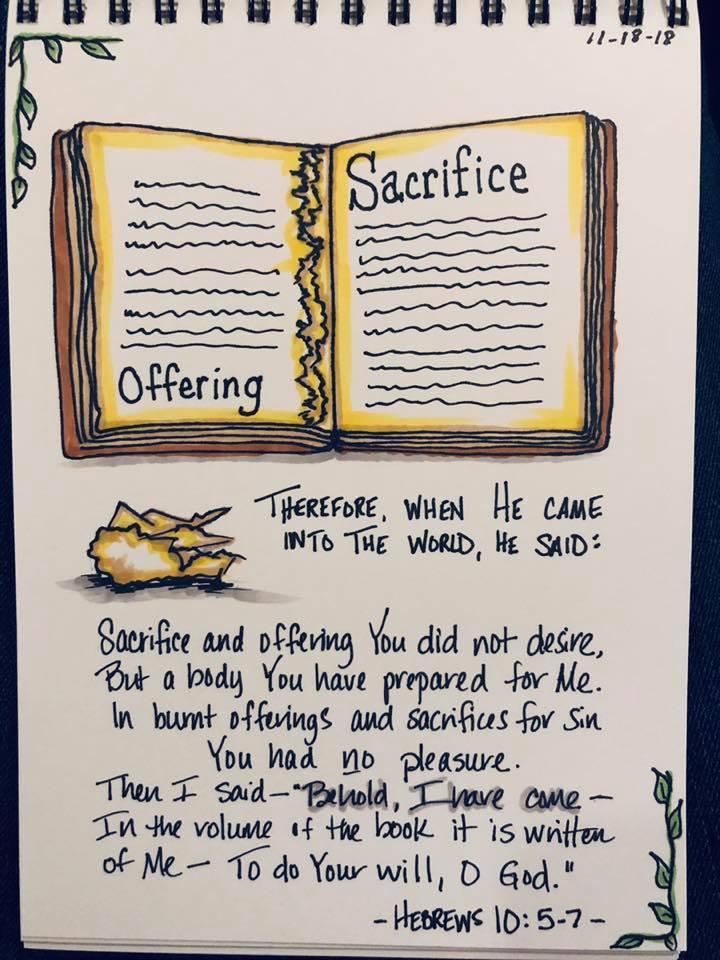 11-18-18
Sacrifice
Offering
THEREFORE, WHEN HE CAME
INTO THE WORLD, HE SAID:
Sacrifice and offering You did not desire,
But a body You have prepared for Me.
In burnt offerings and sacrifices for sin
You had no pleasure.
Then I said—"Behold, I have come —
In the volume of the book it is written
of Me — To do Your will, O God."
- HEBREWS 10:5-7 -